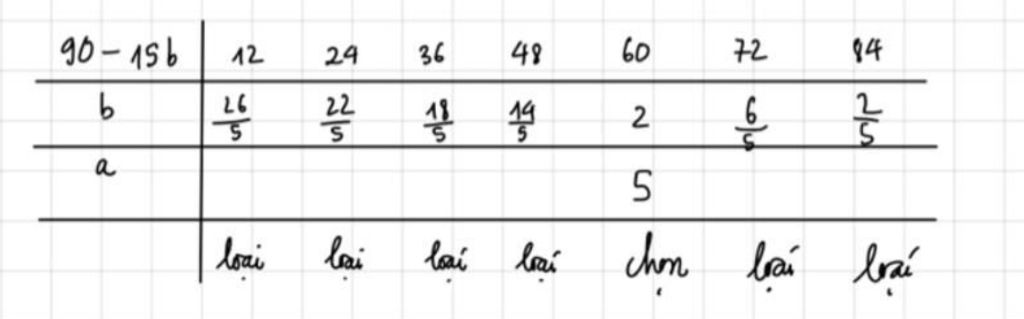 90 - 15b 12 24 36 48 60 72 84
b 26/5 22/5 18/5 14/5 2 6/5 2/5
a 5
loại loại loại loại chọn loại loại